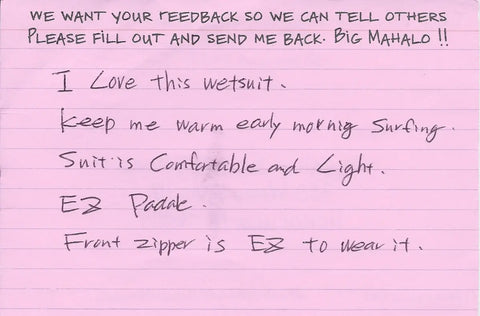 WE WANT YOUR FEEDBACK SO WE CAN TELL OTHERS
PLEASE FILL OUT AND SEND ME BACK. BIG MAHALO !!
I Love this wetsuit.
Keep me warm early mornig Surfing.
Suit is Comfortable and Light.
EZ Padale.
Front zipper is EZ to wear it.